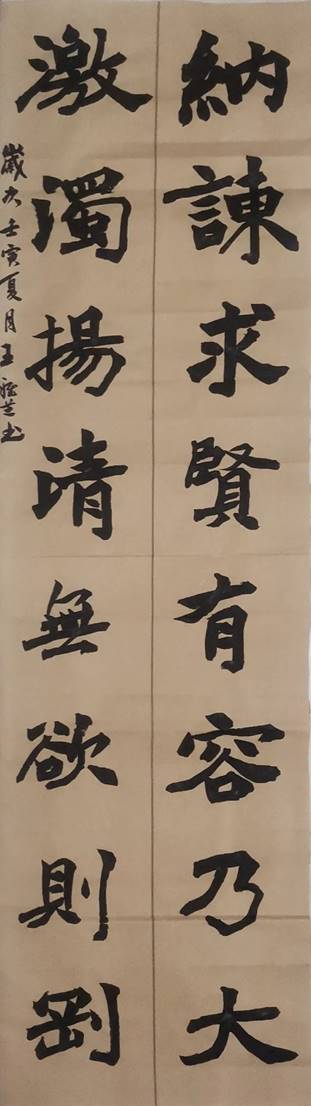 納諫求賢有容乃大
激濁揚清無欲則剛
歲次壬寅夏月王
芝书